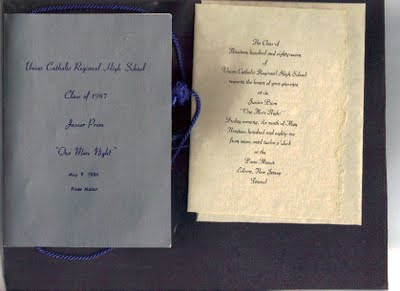 Union Catholic Regional High School
Class of 1987
Junior Prom
"One More Night"
May 9, 1986
Pines Manor
The Class of
Nineteen hundred and eighty-seven
of
Union Catholic Regional High School
requests the honor of your presence
at its
Junior Prom
"One More Night"
Friday evening, the ninth of May
Nineteen hundred and eighty-six
from seven until twelve o'clock
at the
Pines Manor
Edison, New Jersey